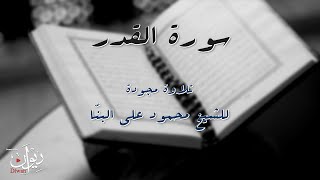 سورة القدر
تلاوة مجودة
للشيخ محمود علي البنّا
ديوان
Diwan